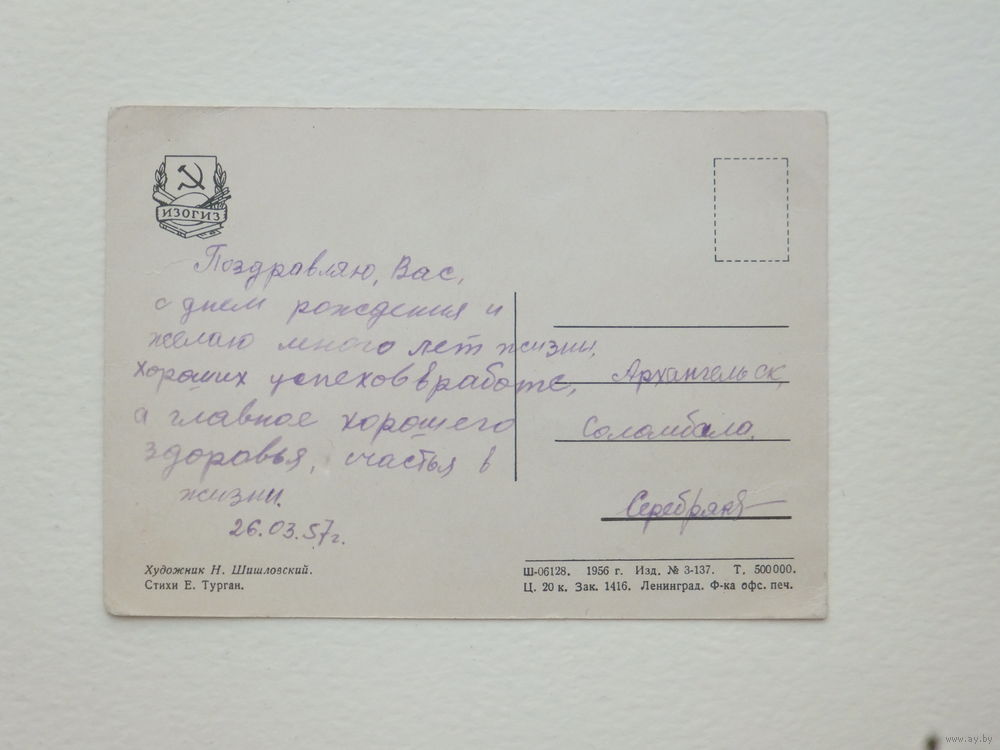 ИЗОГИЗ
Поздравляю, Вас,
с днем рождения и
желаю много лет жизни,
хороших успехов в работе,
а главное хорошего
здоровья, счастья в
жизни.
26.03.57г.
Архангельск,
Соломбала.
Художник Н. Шишловский.
Стихи Е. Турган.
Ш-06128. 1956 г. Изд. № 3-137. Т. 500000.
Ц. 20 к. Зак. 1416. Ленинград. Ф-ка офс. печ.
www.ay.by